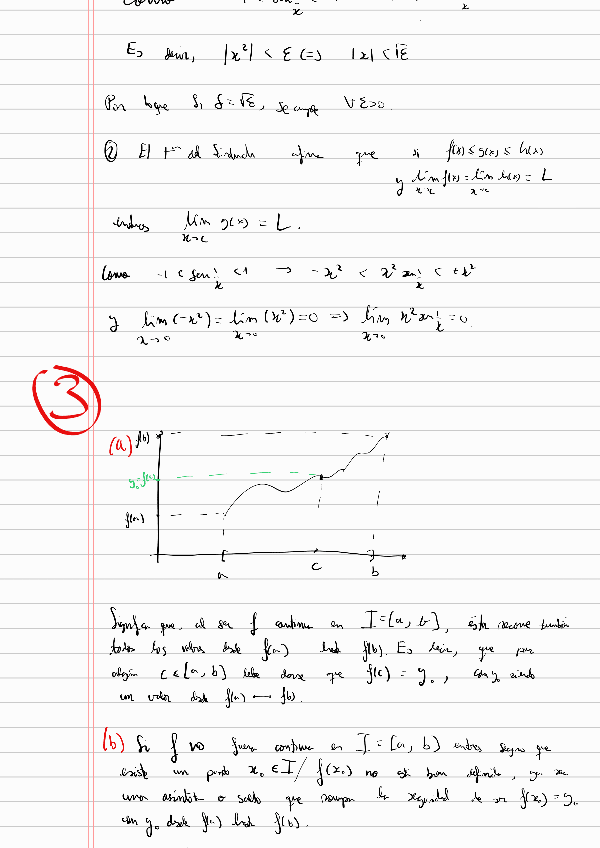 Es decir, |x²| < ε (=) |x| < √ε
Por lo que si δ = √ε, se cumple ∀ε>0.
② El tᵐᵃ del Sandwich afirma que si f(x) ≤ g(x) ≤ h(x)
y lim f(x) = lim h(x) = L
x→c x→c
entonces lim g(x) = L.
x→c
Como -1 < sen 1/x < 1 → -x² < x² sen 1/x < +x²
y lim (-x²) = lim (x²) = 0 => lim x² sen 1/x = 0
x→0 x→0 x→0
3
(a) f(b)
y₀=f(c)
f(a)
a c b
Significa que, al ser f continua en I = [a, b], esta recorre también
todos los valores desde f(a) hasta f(b). Es decir, que para
algún c ∈ [a, b] debe darse que f(c) = y₀, con y₀ siendo
un valor desde f(a) — f(b).
(b) Si f no fuera continua en I = [a, b] entonces que
existe un punto x₀ ∈ I / f(x₀) no está bien definido, ya sea
una asíntota o salto que rompa la seguridad de ser f(x₀) = y₀
con y₀ desde f(a) hasta f(b).